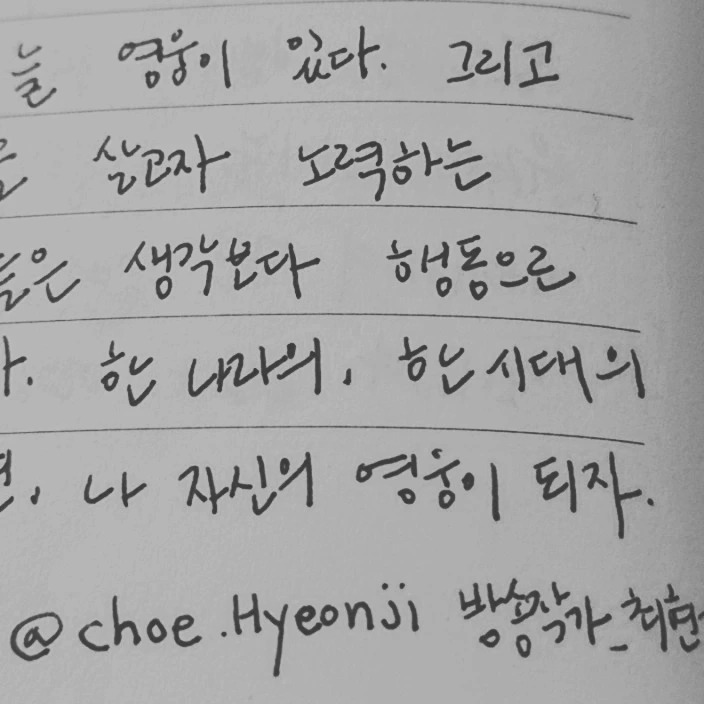 늘 영웅이 있다. 그리고
살고자 노력하는
들은 생각보다 행동으로
한 나라의, 한 시대의
나 자신의 영웅이 되자.
@choe.Hyeonji 방송작가_최현